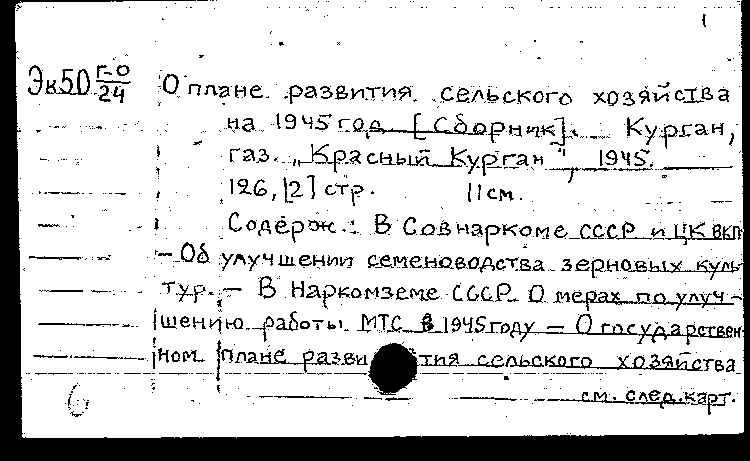 1
Эк50 Г-О/24
О плане развития сельского хозяйства
на 1945 год [Сборник]. Курган,
газ. „Красный Курган", 1945.
126, [2] стр. 11 см.
Содерж.: В Совнаркоме СССР и ЦК ВКП
– Об улучшении семеноводства зерновых куль
тур. – В Наркомземе СССР О мерах по улуч-
шению работы МТС в 1945 году – О государствен
ном плане развития сельского хозяйства
см. след. карт.
6